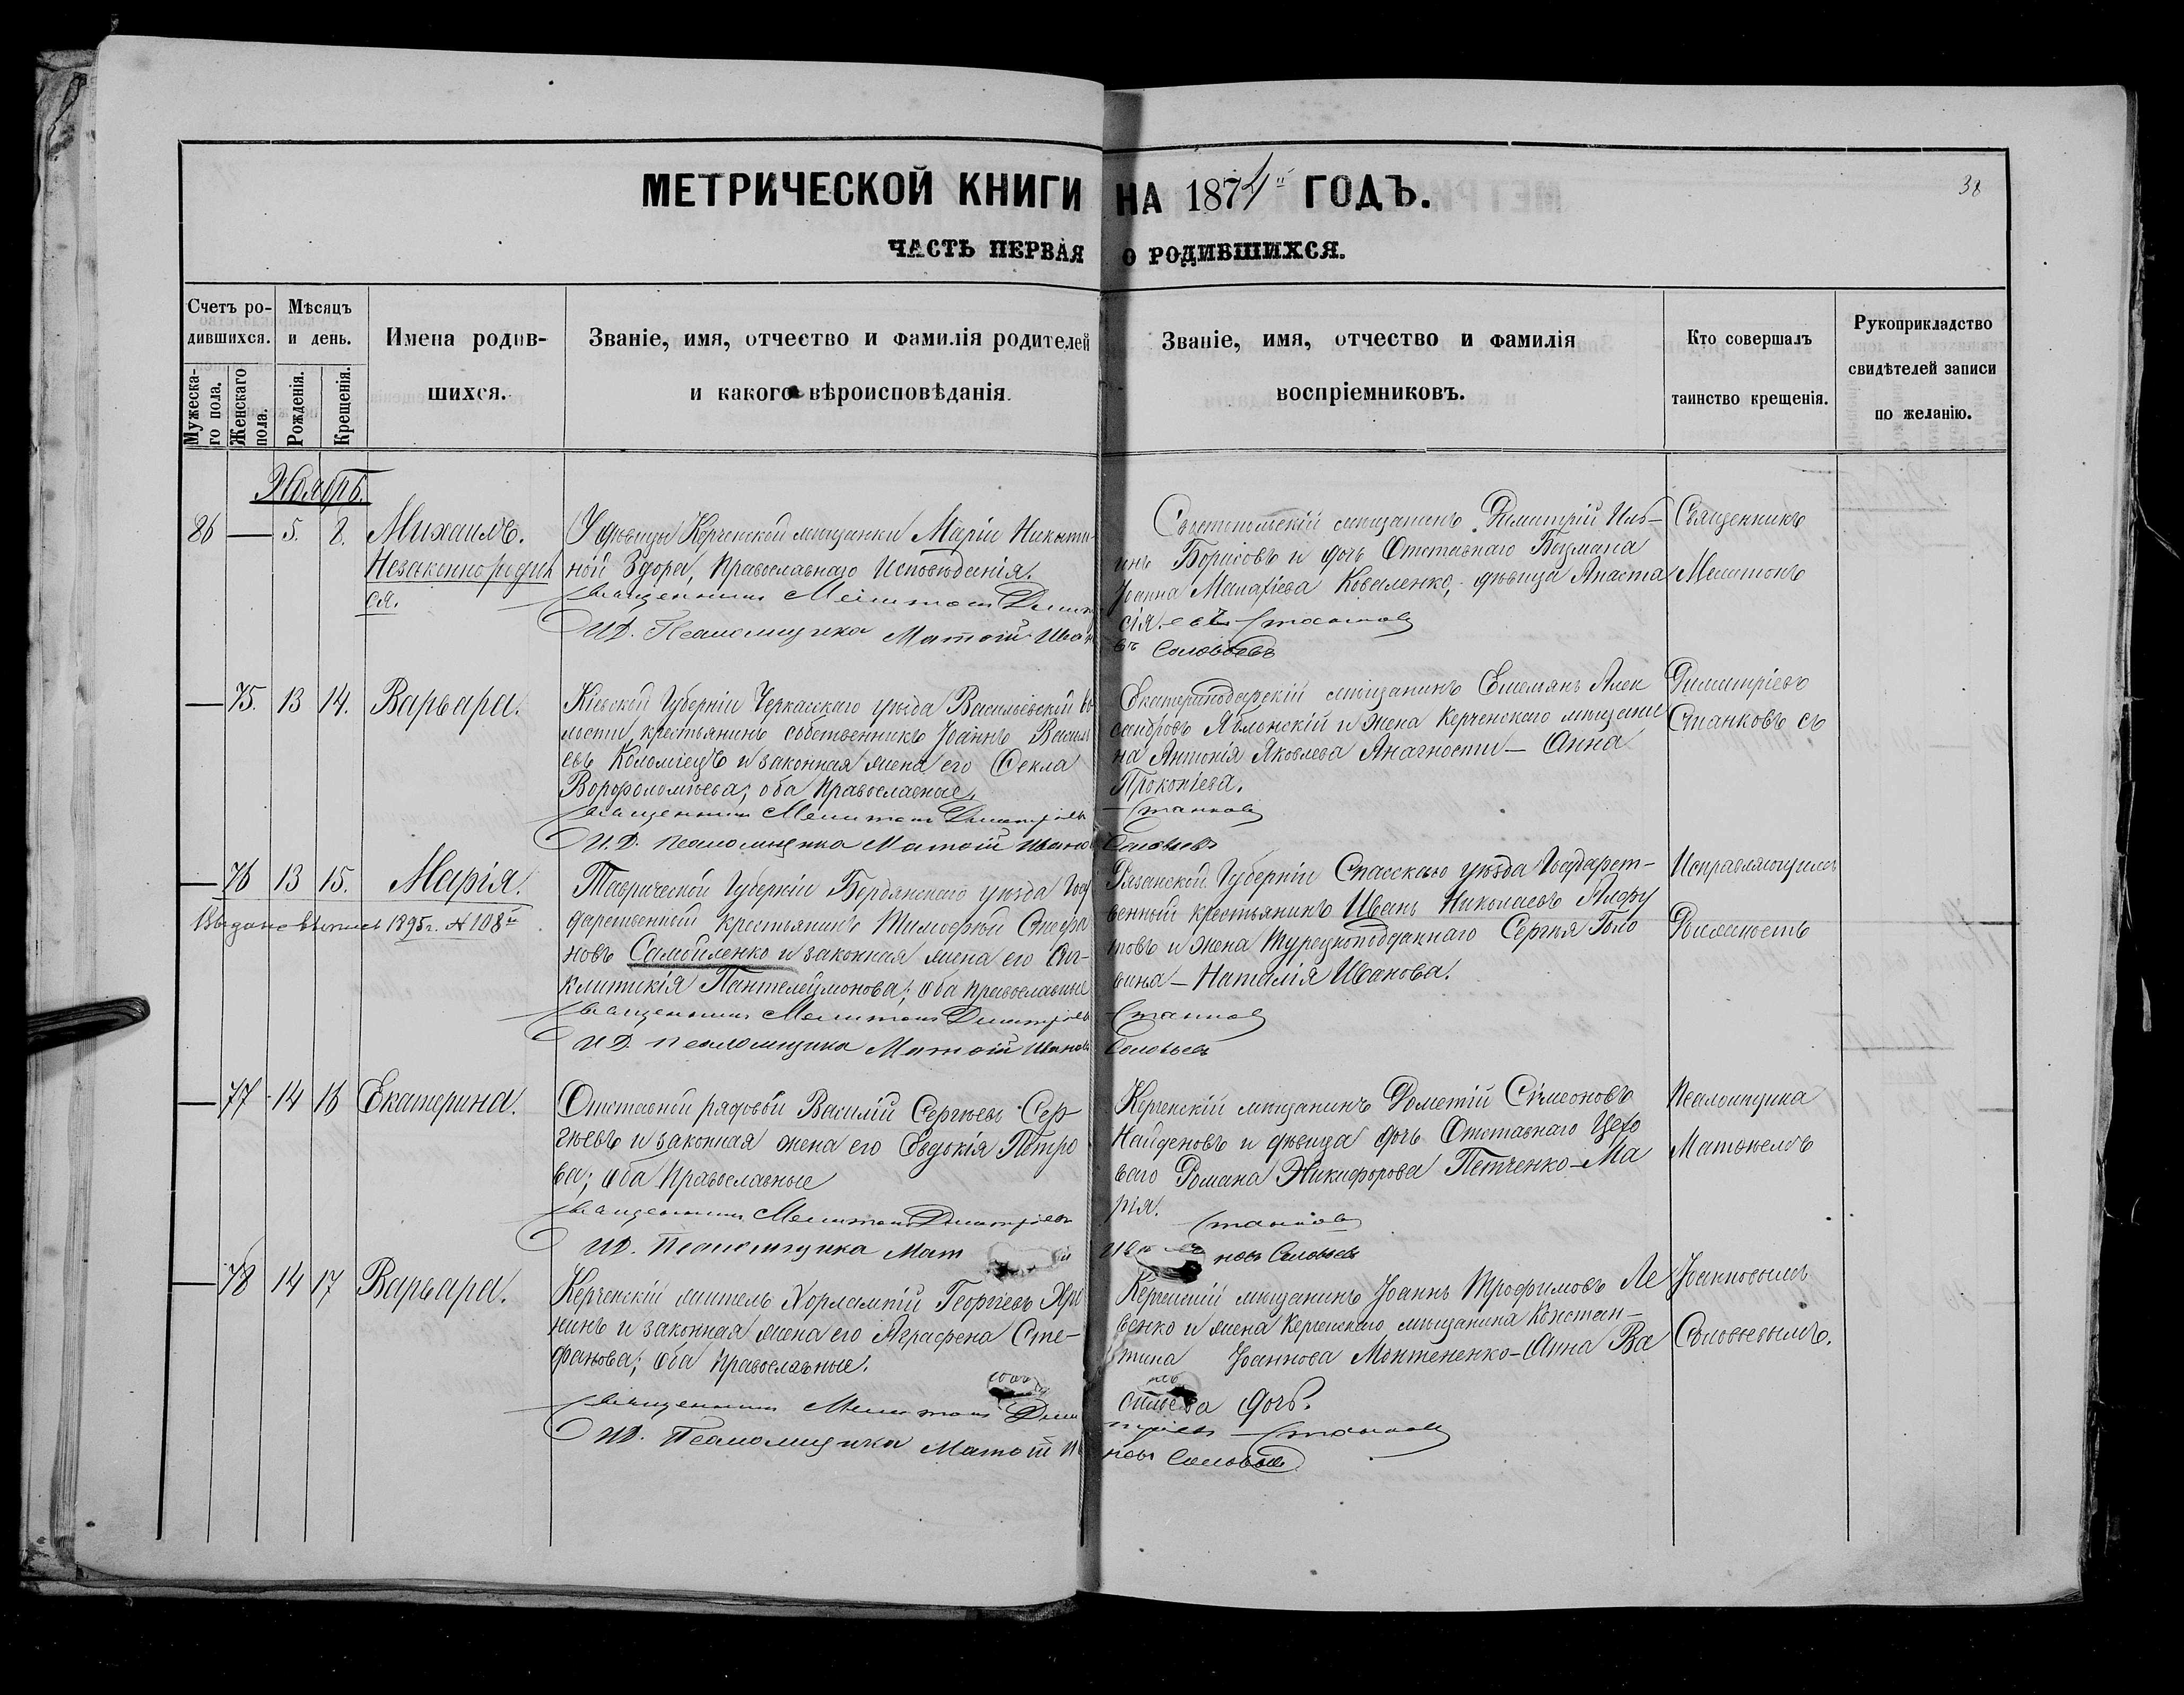 МЕТРИЧЕСКОЙ КНИГИ НА 1874й ГОДЪ.
38
ЧАСТЬ ПЕРВАЯ О РОДИВШИХСЯ.
Счетъ родившихся.
Мужескаго пола.
Женскаго пола.
Мѣсяцъ и день.
Рожденія.
Крещенія.
Имена родившихся.
Званіе, имя, отчество и фамилія родителей
и какого вѣроисповѣданія.
Званіе, имя, отчество и фамилія
воспріемниковъ.
Кто совершалъ
таинство крещенія.
Рукоприкладство
свидѣтелей записи
по желанію.
Ноябрь.
86 — 5. 8. Михаилъ.
Незаконнородил
ся.
У дѣвицы Керченской мѣщанки Маріи Никити-
ной Здора, Православнаго Исповѣданія.
Священникъ Мелитонъ Димитр
И.Д. Псаломщика Матѳій Иван
Севастопольскій мѣщанинъ Димитрій Иль-
инъ Борисовъ и дочь Отставнаго Боцмана
Іоанна Малахіева Коваленко, дѣвица Анаста
сія.
Станковъ
въ Соловьевъ
Священникъ
Мелитонъ
— 75. 13 14. Варвара.
Кіевской Губерніи Черкасскаго уѣзда Васильевской во
лости, крестьянинъ собственникъ Іоаннъ Василь
евъ Коломіецъ и законная жена его Ѳекла
Ворѳоломѣева; оба Православные.
Священникъ Мелитонъ Димитріевъ
И.Д. псаломщика Матѳій Иванов
Екатеринодарскій мѣщанинъ Емелянъ Алек
сандровъ Яблонскій и жена Керченскаго мѣщани
на Антонія Яковлева Анагности — Анна
Прокопіева.
Станковъ
Соловьевъ
Димитріевъ
Станковъ съ
— 76 13 15. Марія.
Выдана выпись 1895 г. № 108й
Таврической Губерніи Бердянскаго уѣзда Госу
дарственный крестьянинъ Тимоѳей Стефа
новъ Самойленко и законная жена его Син-
клитикія Пантелеймонова; оба православные
Священникъ Мелитонъ Димитріевъ
И.Д. псаломщика Матѳій Иванов
Рязанской Губерніи Спасскаго уѣзда Государст-
венный крестьянинъ Иванъ Николаевъ Алфу
товъ и жена Турецкоподданнаго Сергѣя Голо
вина — Наталія Иванова.
Станковъ
Соловьевъ
Исправляющимъ
Должность
— 77 14 16 Екатерина.
Отставной рядовой Василій Сергѣевъ Сер-
гѣевъ и законная жена его Евдокія Петро
ва; оба Православные
Священникъ Мелитонъ Димитріевъ
И.Д. Псаломщика Матѳій
Керченскій мѣщанинъ Дометій Симеоновъ
Найденовъ и дѣвица дочь Отставнаго Цехо
ваго Романа Никифорова Петченко — Ма
рія.
Станковъ
новъ Соловьевъ
Псаломщика
Матѳѣемъ
— 78 14 17 Варвара.
Керченскій житель Хорлампій Георгіевъ Хри
нинъ и законная жена его Аграфена Сте-
фанова; оба православные.
Священникъ Мелитонъ Дими
И.Д. Псаломщика Матѳій И
Керченскій мѣщанинъ Іоаннъ Трофимовъ Ле
венко и жена Керченскаго мѣщанина Констан-
тина Іоаннова Монтененко — Анна Ва
сильева дочь.
тріевъ Станковъ
новъ Соловьевъ
Іоанновымъ
Соловьевымъ.